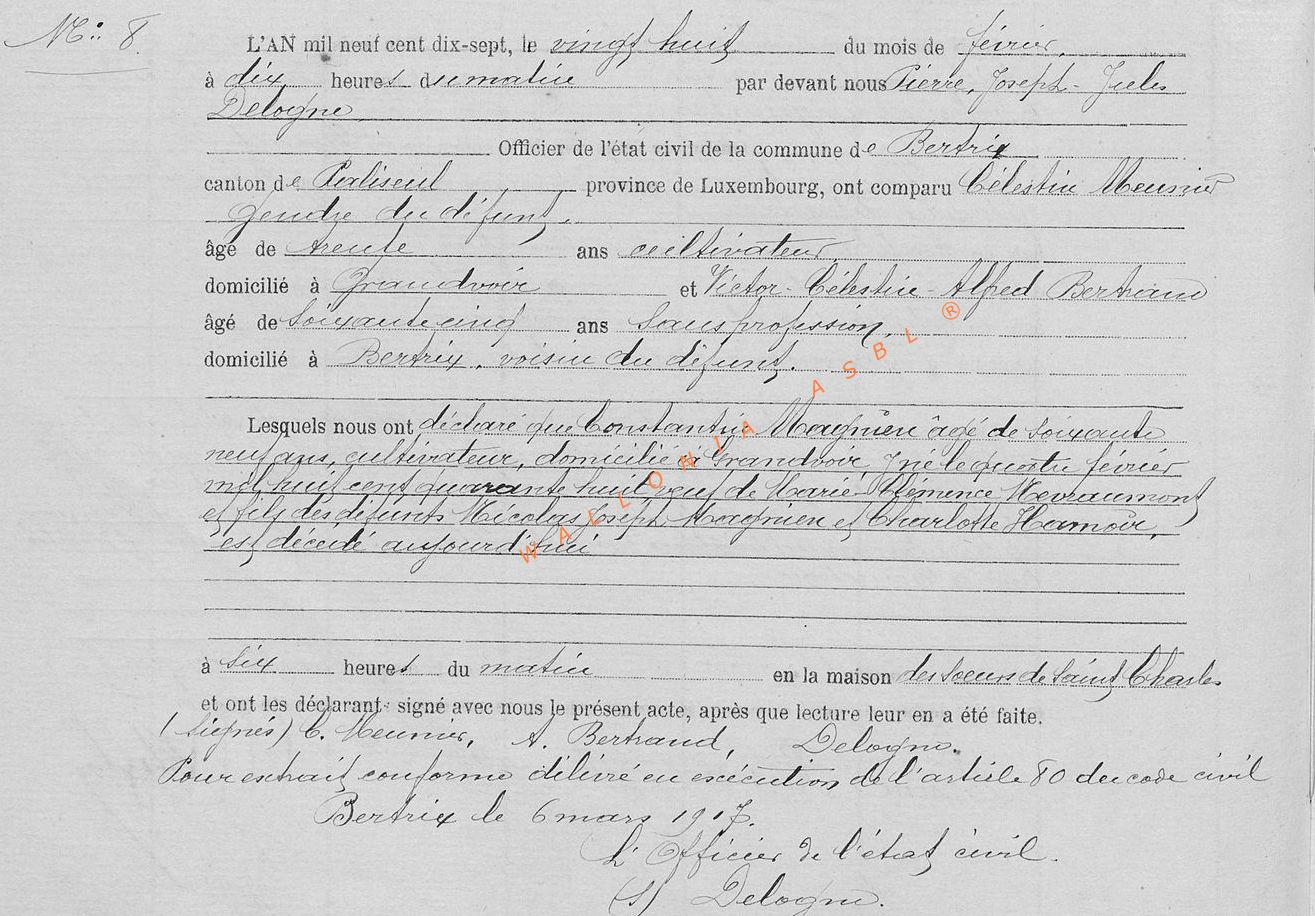 N°: 8
L'AN mil neuf cent dix-sept, le vingt huit du mois de février,
à dix heures du matin par devant nous Pierre, Joseph - Jules
Delogne
Officier de l'état civil de la commune de Bertrix
canton de Paliseul province de Luxembourg, ont comparu Célestin Meunier
gendre du défunt,
âgé de trente ans cultivateur,
domicilié à Grandvoir et Victor - Célestin - Alfred Bertrand
âgé de soixante cinq ans sans profession,
domicilié à Bertrix, voisin du défunt.
Lesquels nous ont déclaré que Constantin Magnien âgé de soixante
neuf ans, cultivateur, domicilié à Grandvoir, né le quatre février
mil huit cent quarante huit veuf de Marie Clémence Nevraumont
et fils des défunts Nicolas Joseph Magnien et Charlotte Hamoir,
est décédé aujourd'hui
à six heures du matin en la maison des soeurs de Saint Charles
et ont les déclarant signé avec nous le présent acte, après que lecture leur en a été faite.
(Signés) C. Meunier, A. Bertrand, Delogne.
Pour extrait conforme délivré en exécution de l'article 80 du code civil
Bertrix le 6 mars 1917.
L'Officier de l'état civil.
(s) Delogne.
WALLONIA ASBL ®